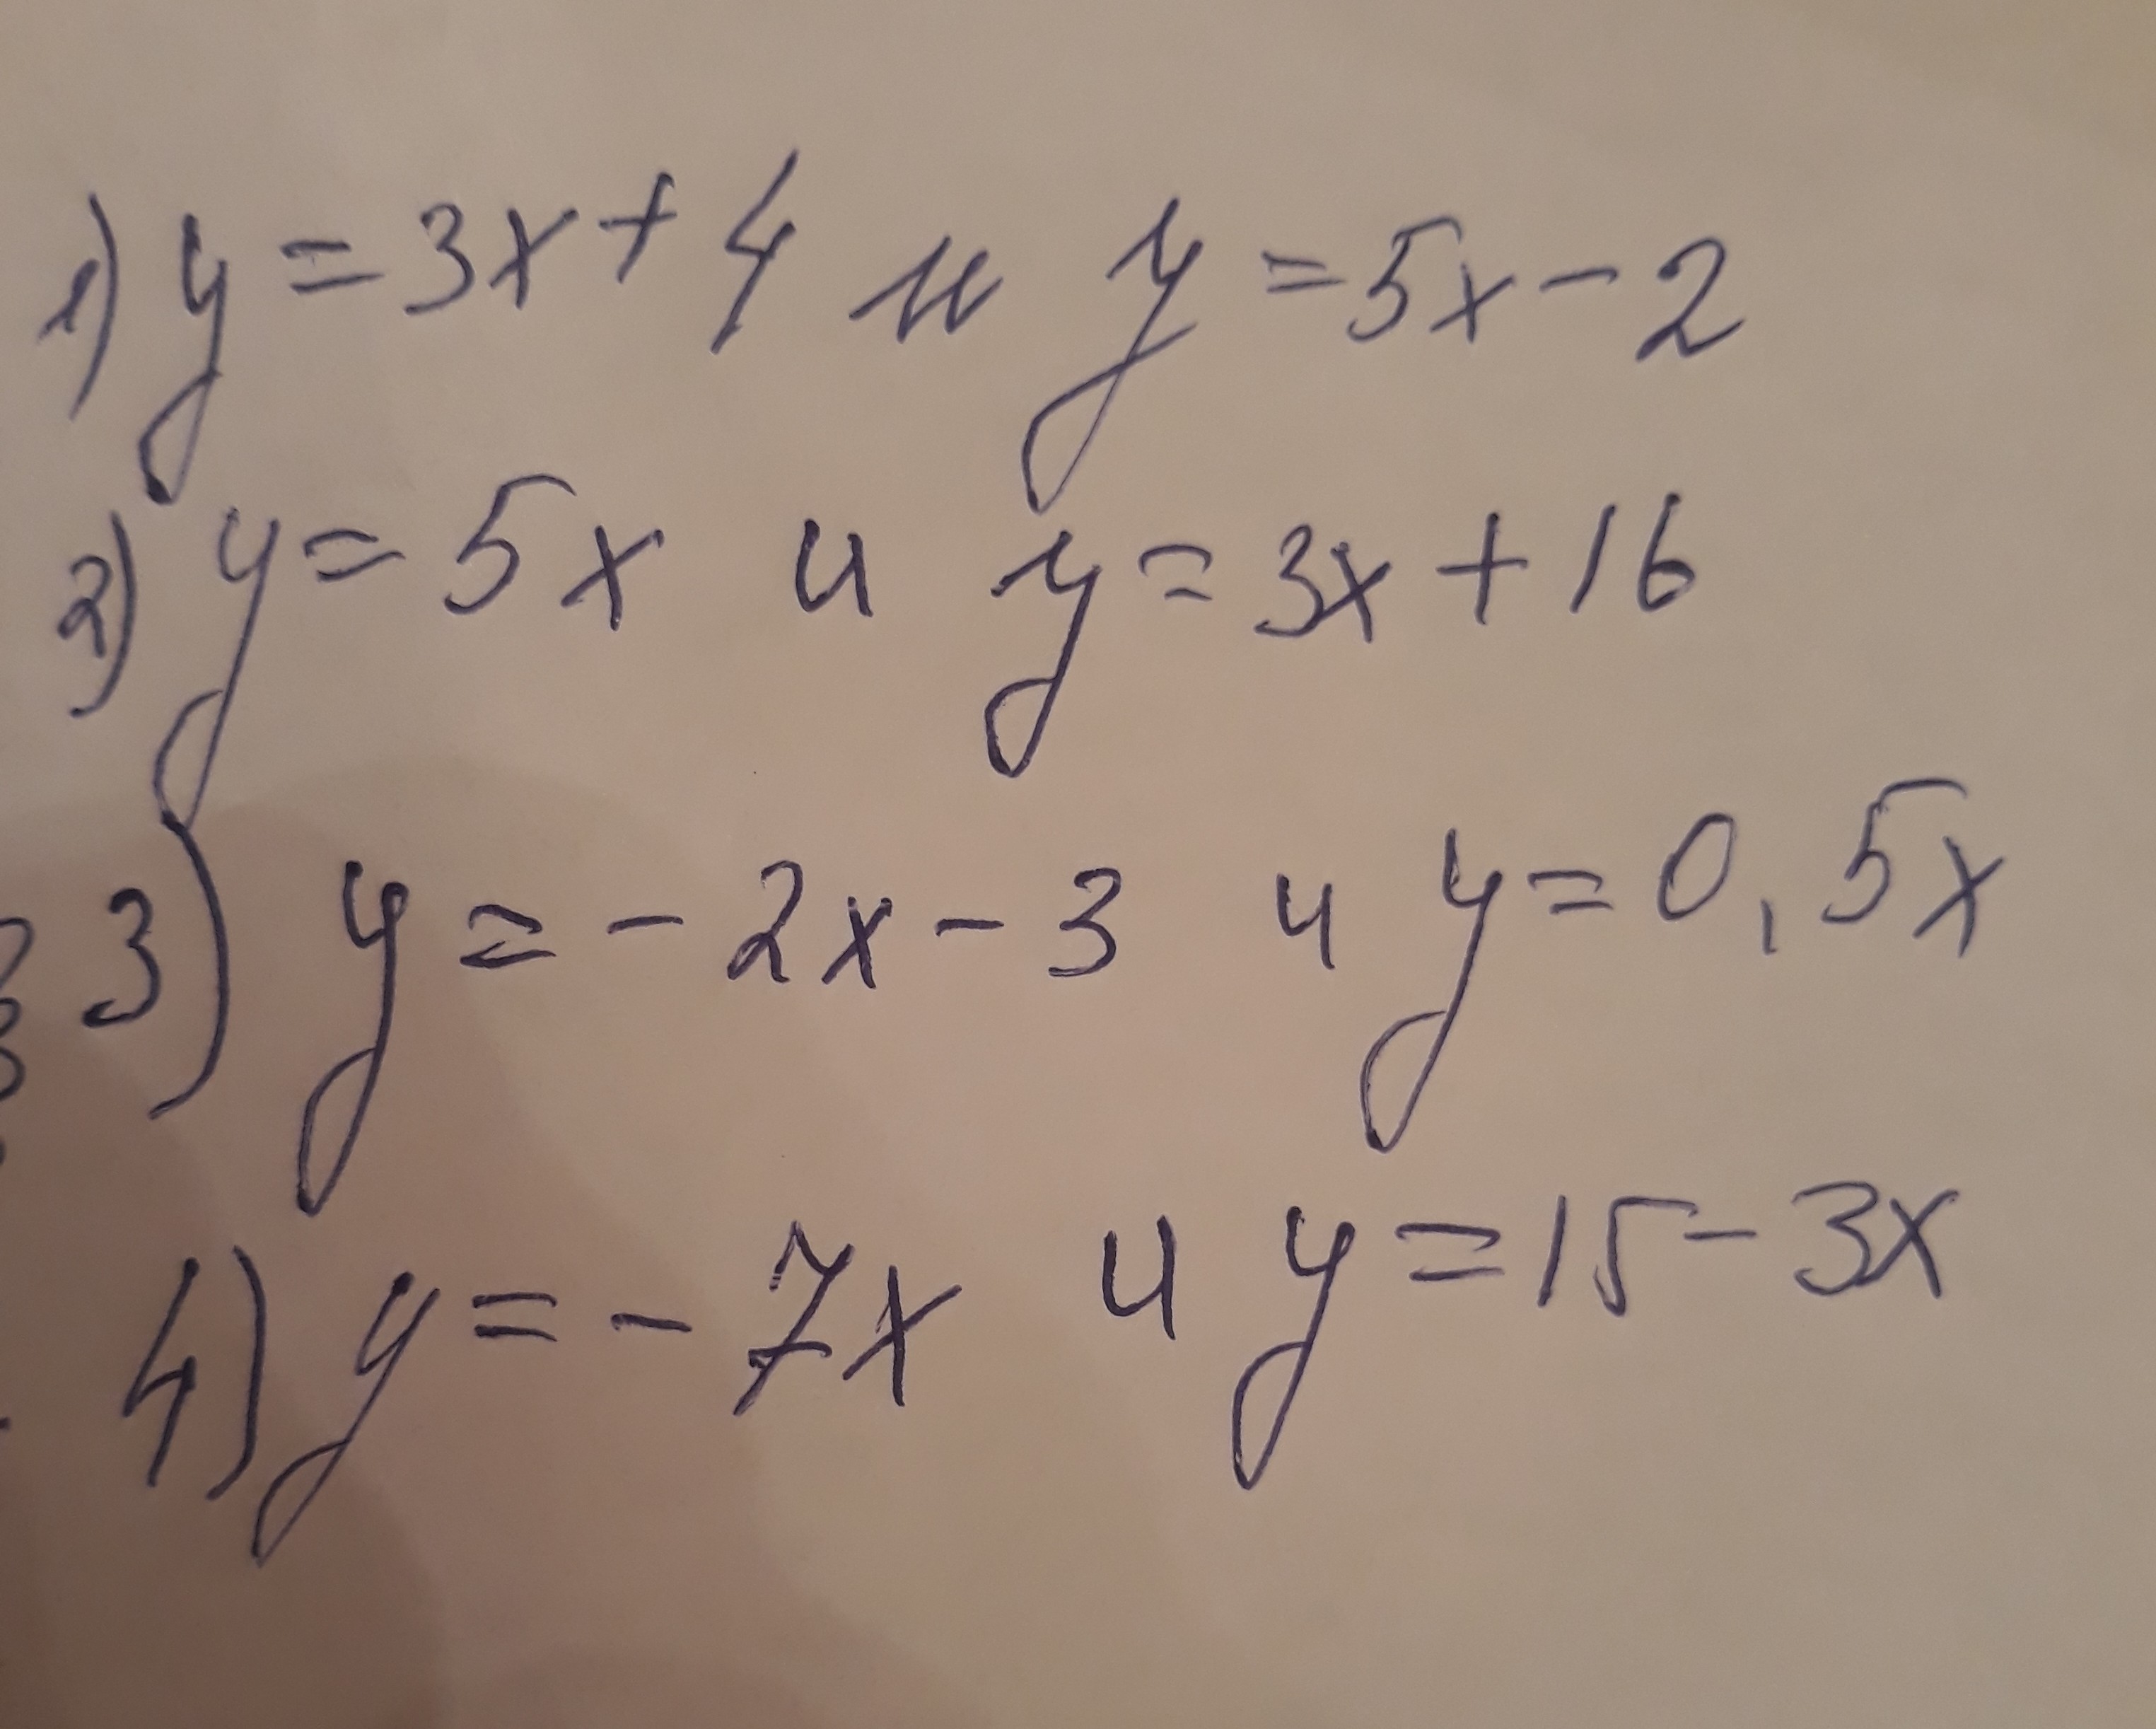 1) y = 3x + 4 и y = 5x - 2
2) y = 5x и y = 3x + 16
3) y = - 2x - 3 и y = 0,5x
4) y = - 7x и y = 15 - 3x